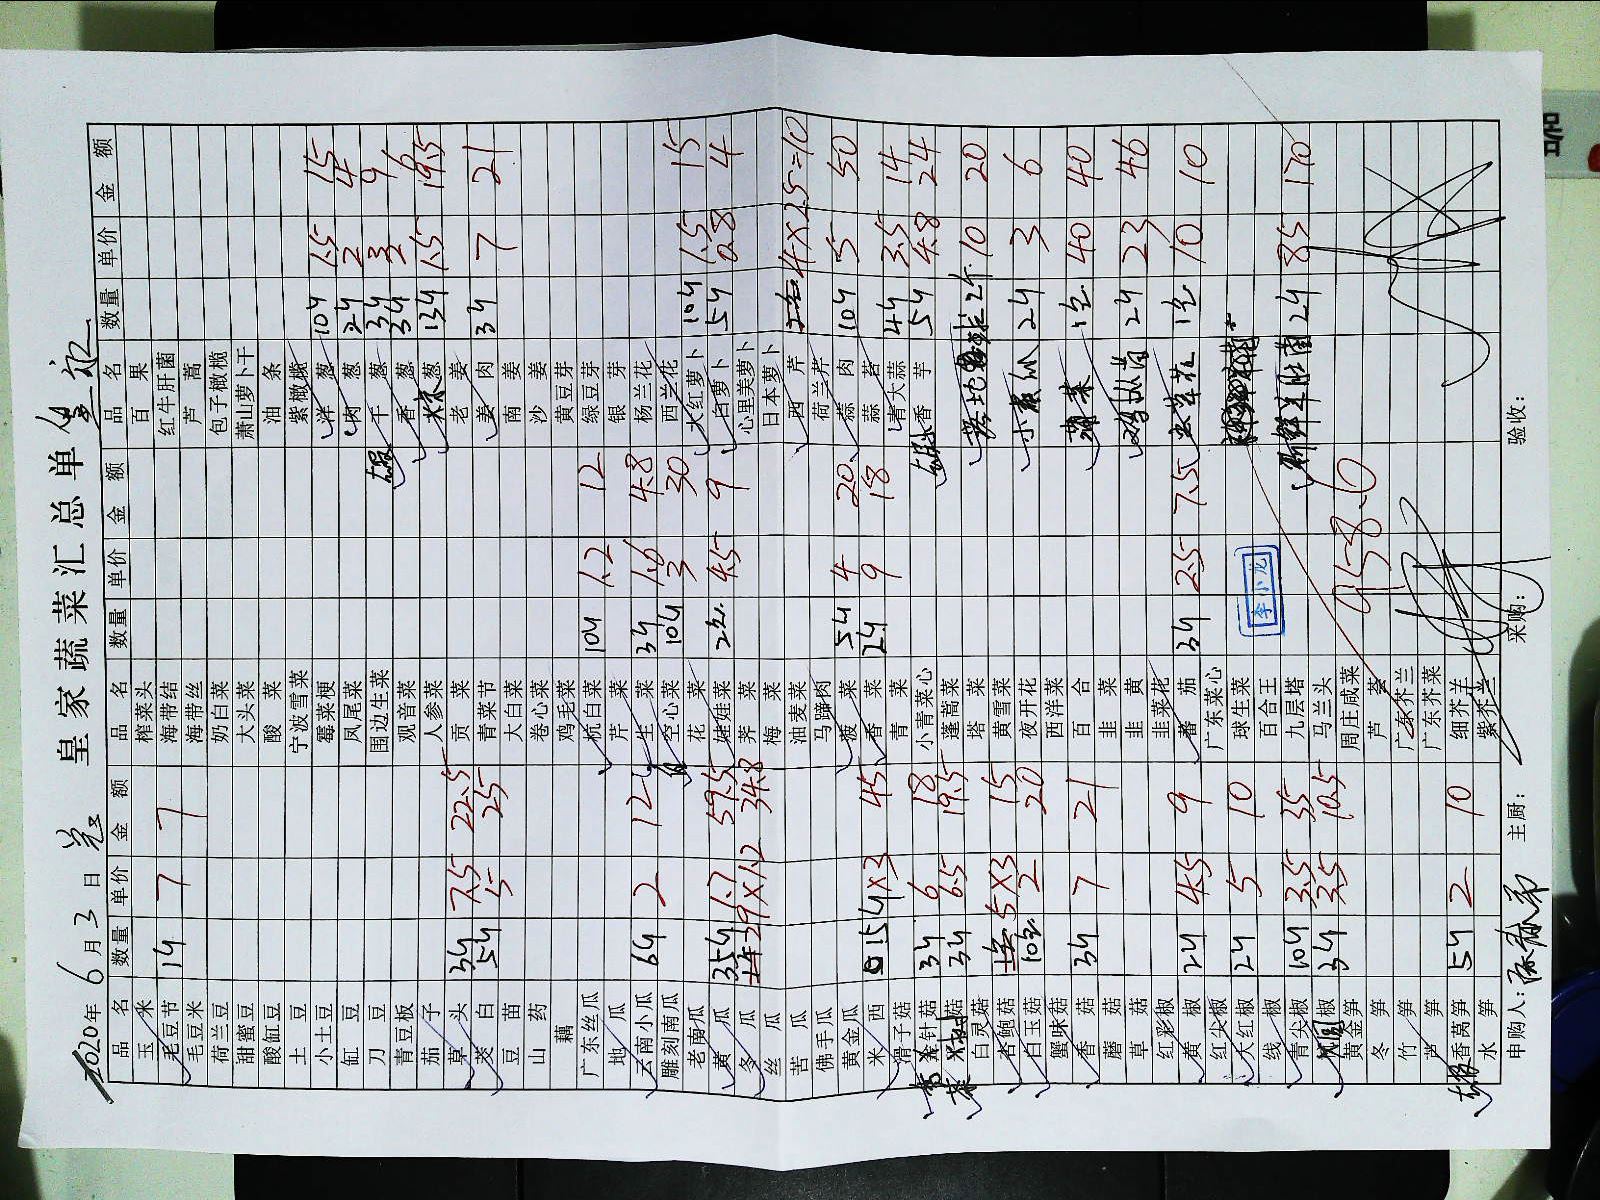 皇家蔬菜汇总单
2020年6月3日
品名 数量 单价 金额 品名 数量 单价 金额 品名 数量 单价 金额
玉米 榨菜头 百果
毛豆节 1斤 7 7 海带结 红牛肝菌
毛豆米 海带丝 芦蒿
荷兰豆 奶白菜 包子橄榄
甜蜜豆 大头菜 萧山萝卜干
酸缸豆 酸菜 油条
土豆 宁波雪菜 紫橄榄
小土豆 霉菜梗 洋葱 10斤 1.5 15
缸豆 凤尾菜 肉葱 2斤 2 4
刀豆 围边生菜 干葱 3斤 3 9
青豆板 观音菜 香葱 3斤 2 6
茄子 人参菜 大葱 13斤 1.5 19.5
草头 3斤 7.5 22.5 贡菜 老姜
茭白 5斤 5 25 青菜节 姜肉 3斤 7 21
豆苗 大白菜 南姜
山药 卷心菜 沙姜
藕 鸡毛菜 黄豆芽
广东丝瓜 杭白菜 10斤 1.2 12 绿豆芽
地瓜 芹菜 银芽
云南小瓜 6斤 2 12 生菜 3斤 1.6 4.8 杨兰花
雕刻南瓜 空心菜 10斤 3 30 西兰花
老南瓜 花菜 大红萝卜 10斤 1.5 15
黄瓜 35斤 1.7 59.5 娃娃菜 2 4.5 9 白萝卜 5斤 0.8 4
冬瓜 29×1.2 34.8 荠菜 心里美萝卜
丝瓜 梅菜 日本萝卜
苦瓜 油麦菜 西芹 4×2.5=10
佛手瓜 马蹄肉 荷兰芹
黄金瓜 菠菜 5斤 4 20 蒜肉 10斤 5 50
米西 15斤×3 45 香菜 2斤 9 18 蒜苔
滑子菇 青菜 诸大蒜 4斤 3.5 14
金针菇 3斤 6 18 小青菜心 香芋 5斤 4.8 24
3斤 6.5 19.5 蓬蒿菜
白灵菇 塔菜 10 20
杏鲍菇 5×3 15 黄雪菜
白玉菇 10 2 20 夜开花 小黄瓜 2斤 3 6
蟹味菇 西洋菜
香菇 3斤 7 21 百合 1包 40 40
蘑菇 韭菜
草菇 韭黄 2斤 23 46
红彩椒 韭菜花
黄椒 2斤 4.5 9 番茄 3斤 2.5 7.5 1包 10 10
红尖椒 广东菜心
大红椒 2斤 5 10 球生菜
线椒 百合王
青尖椒 10斤 3.5 35 九层塔 新鲜牛肝菌 2斤 85 170
椒 3斤 3.5 10.5 马兰头
黄金笋 周庄咸菜
冬笋 芦荟
竹笋 广东芥兰
芦笋 广东芥菜
香莴笋 5斤 2 10 细芥兰
水笋 紫芥兰
李小龙
958.6
申购人： 主厨： 采购： 验收：